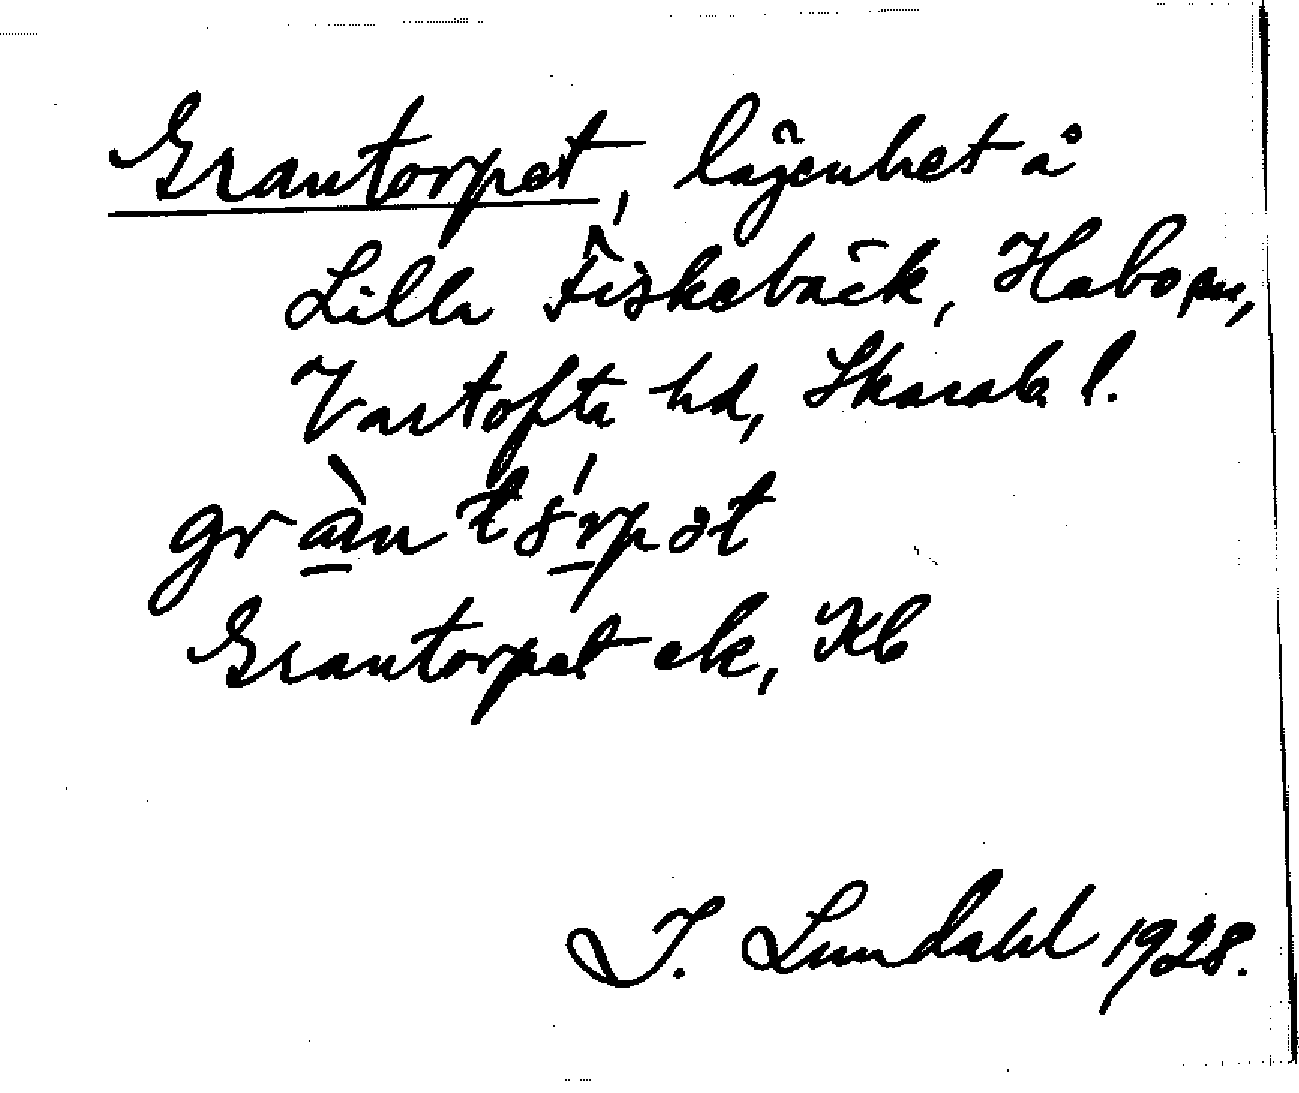 Grantorpet, lägenhet å
Lilla Fiskebäck, Habo sn,
Vartofta hd, Skarab. l.
Grantorpet ek, Kb
I. Lundahl 1928.